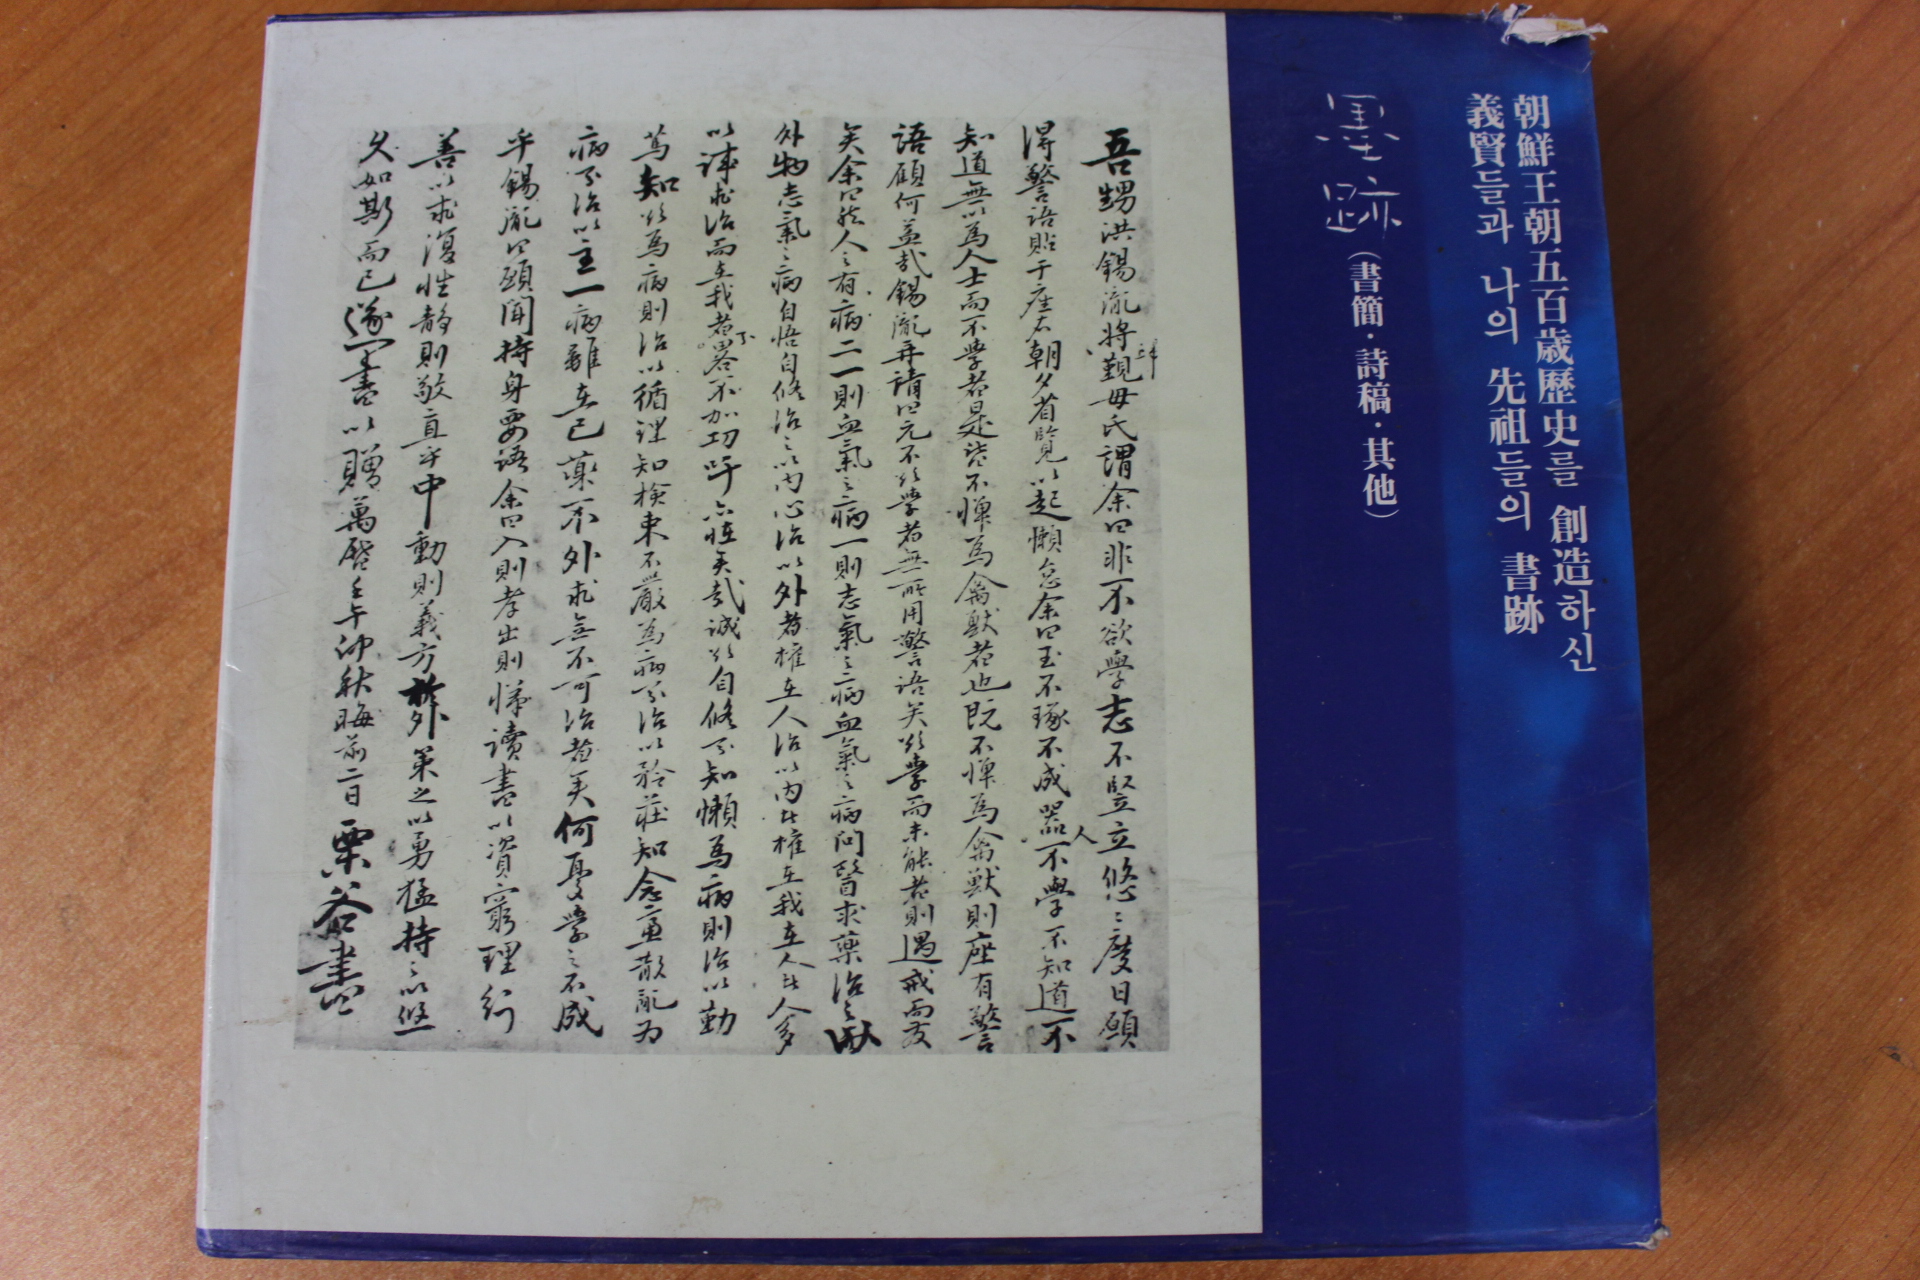 朝鮮王朝五百歲歷史를 創造하신
義賢들과 나의 先祖들의 書跡
墨跡 (書簡·詩稿·其他)
吾甥洪錫胤將覲母氏謂余曰非不欲學志不堅立悠〻度日願
得警語貼于座右朝夕省覽以起懶怠余曰玉不琢不成器人不學不知道不
知道無以爲人士而不學者是皆不憚爲禽獸者也旣不憚爲禽獸則座有警
語顧何益哉錫胤再請曰元不欲學者無所用警語矣欲學而未能者則遇戒而友
矣余曰然人之有病二一則血氣之病一則志氣之病血氣之病問醫求藥治之
外物志氣之病自悟自修治之以內心治以外者權在人治以內者權在我在人者人多
以誠求治而在我者畧不加功吁亦怪矣哉誠欲自修不知懶爲病則治以勤
篤知欲爲病則治以循理知檢束不嚴爲病則治以矜莊知念慮散亂爲
病則治以主一病雖在己藥不外求無不可治者矣何憂學之不成
乎錫胤曰願聞持身要語余曰入則孝出則悌讀書以資窮理行
善以求復性靜則敬直乎中動則義方於外策之以勇猛持之以悠
久如斯而已遂書以贈萬曆壬午仲秋晦前二日 栗谷書